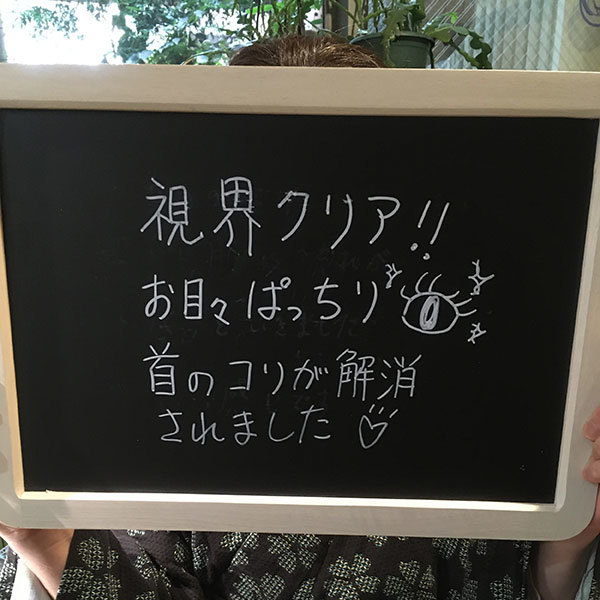 視界クリア!!
お目々ぱっちり
首のコリが解消
されました